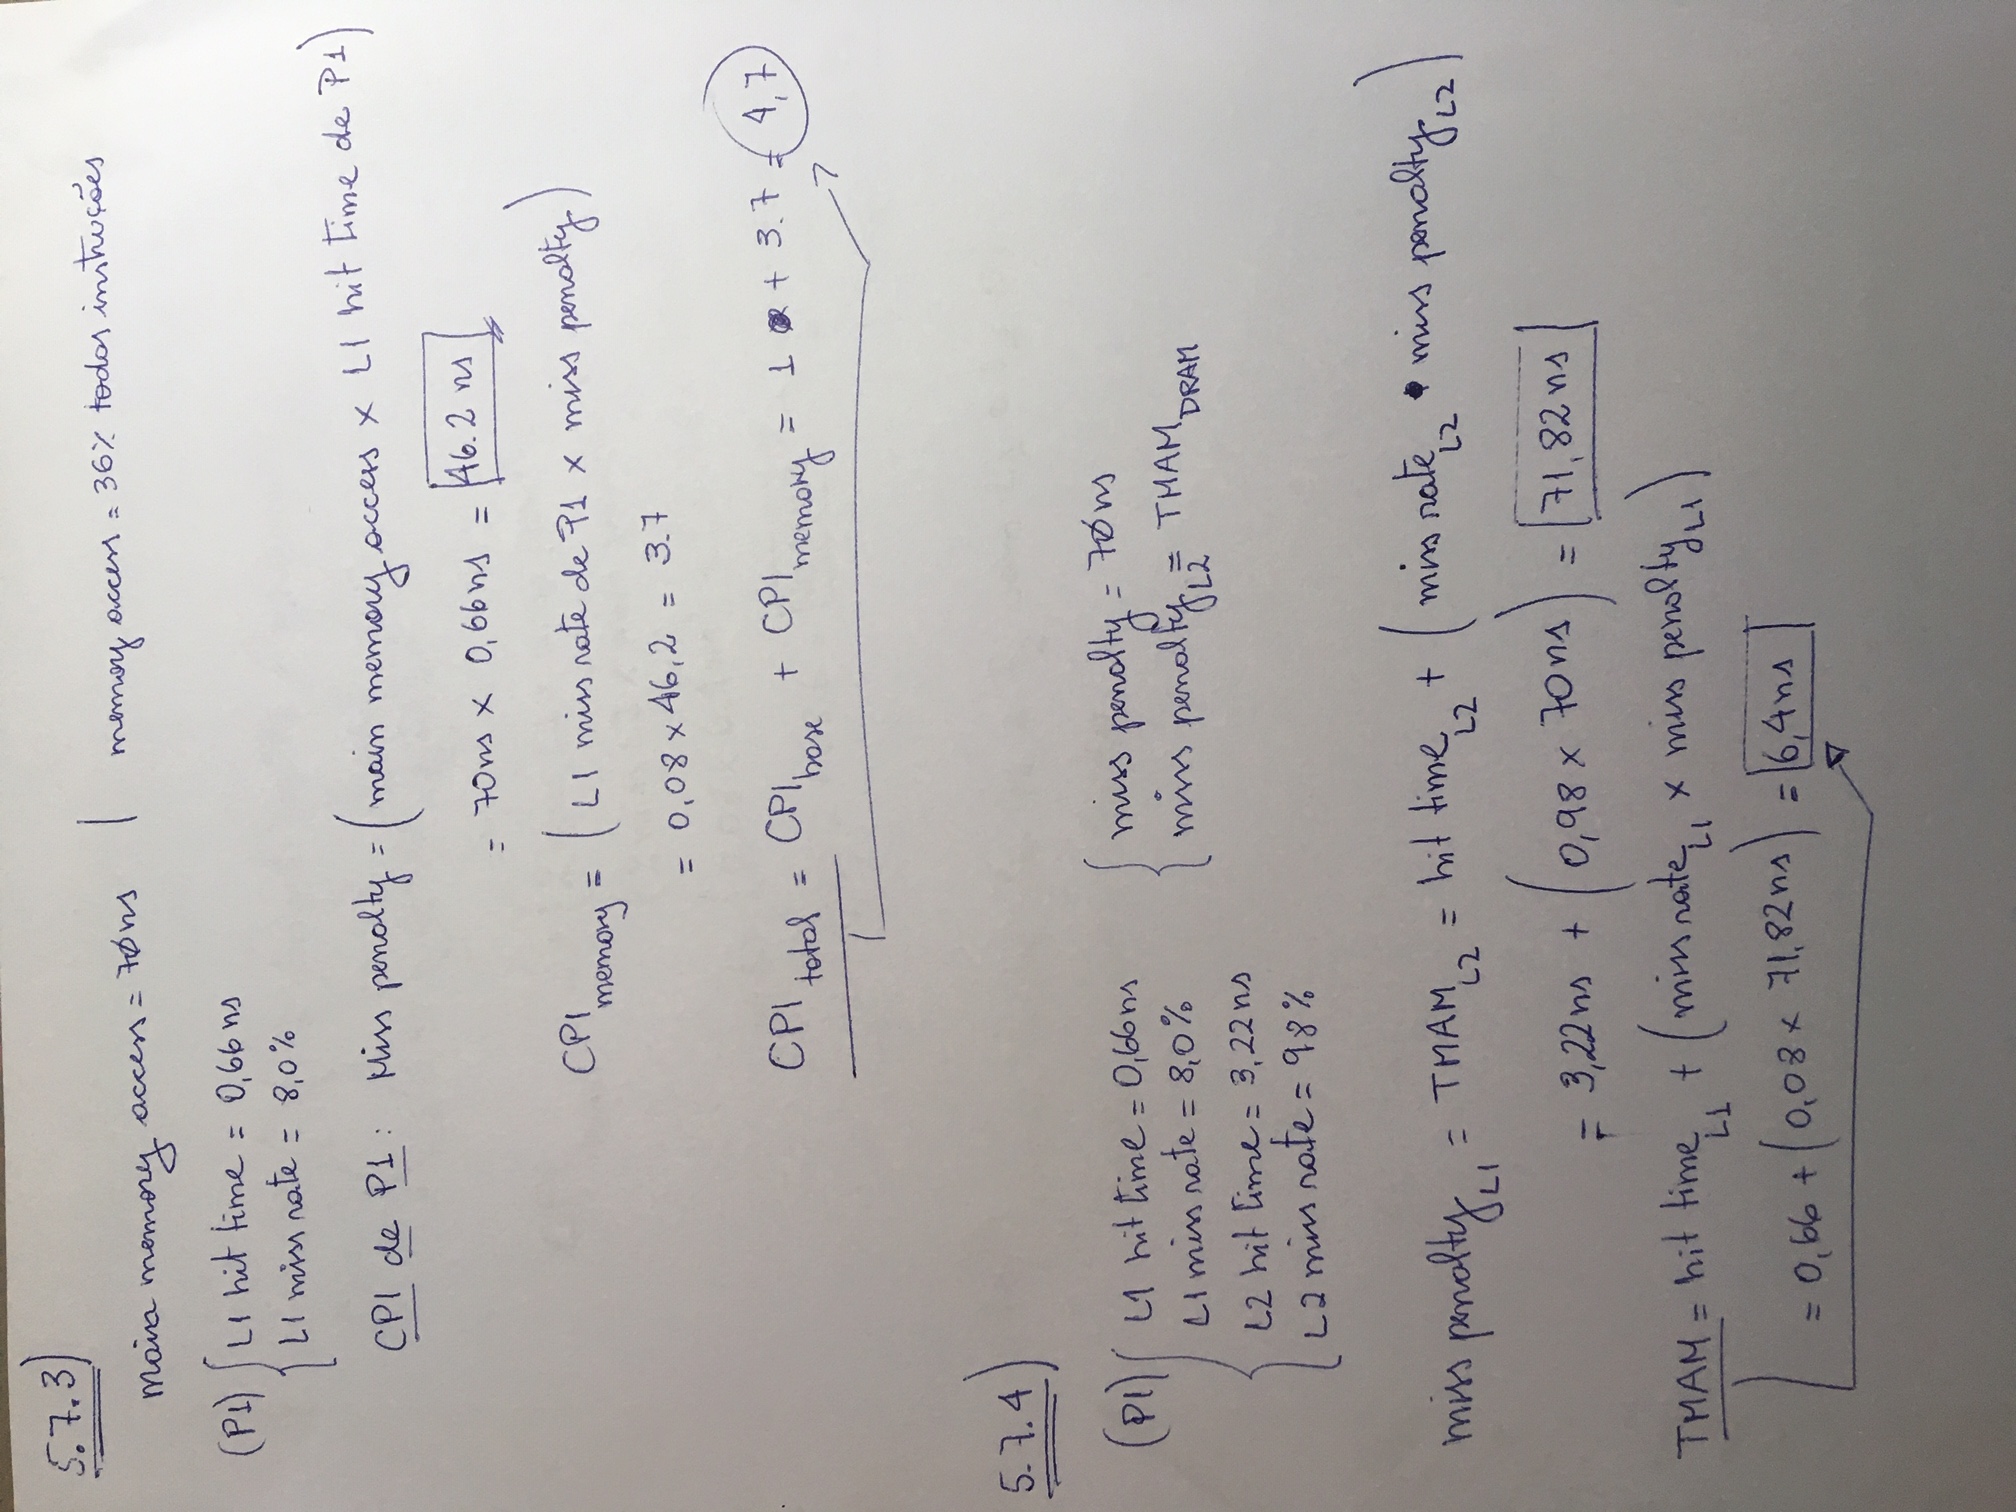 5.7.3)
main memory access = 70ns | memory access = 36% todas instruções
(P1) { L1 hit time = 0,66 ns
L1 miss rate = 8,0%
CPI de P1: Miss penalty = (main memory access x L1 hit time de P1)
= 70ns x 0,66ns = 46.2 ns
CPI memory = (L1 miss rate de P1 x miss penalty)
= 0,08 x 46,2 = 3.7
CPI total = CPI base + CPI memory = 1 + 3.7 = 4,7
5.7.4)
(P1) { L1 hit time = 0,66ns { miss penalty = 70ns
L1 miss rate = 8,0% miss penalty L2 = TMAM DRAM
L2 hit time = 3,22ns
L2 miss rate = 98%
miss penalty L1 = TMAM L2 = hit time L2 + (miss rate L2 • miss penalty L2)
= 3,22ns + (0,98 x 70ns) = 71,82 ns
TMAM = hit time L1 + (miss rate L1 x miss penalty L1)
= 0,66 + (0,08 x 71,82ns) = 6,4ns